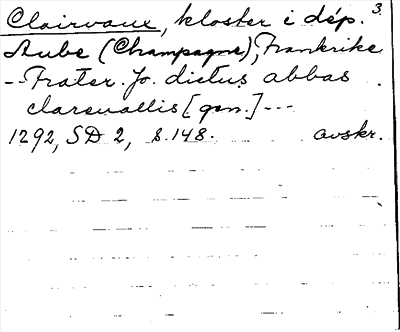 Clairvaux, kloster i dép. 3
Aube (Champagne), Frankrike
-- Frater. Jo. dictus abbas
clarevallis [gen.] ---
1292, SD 2, s. 148. avskr.